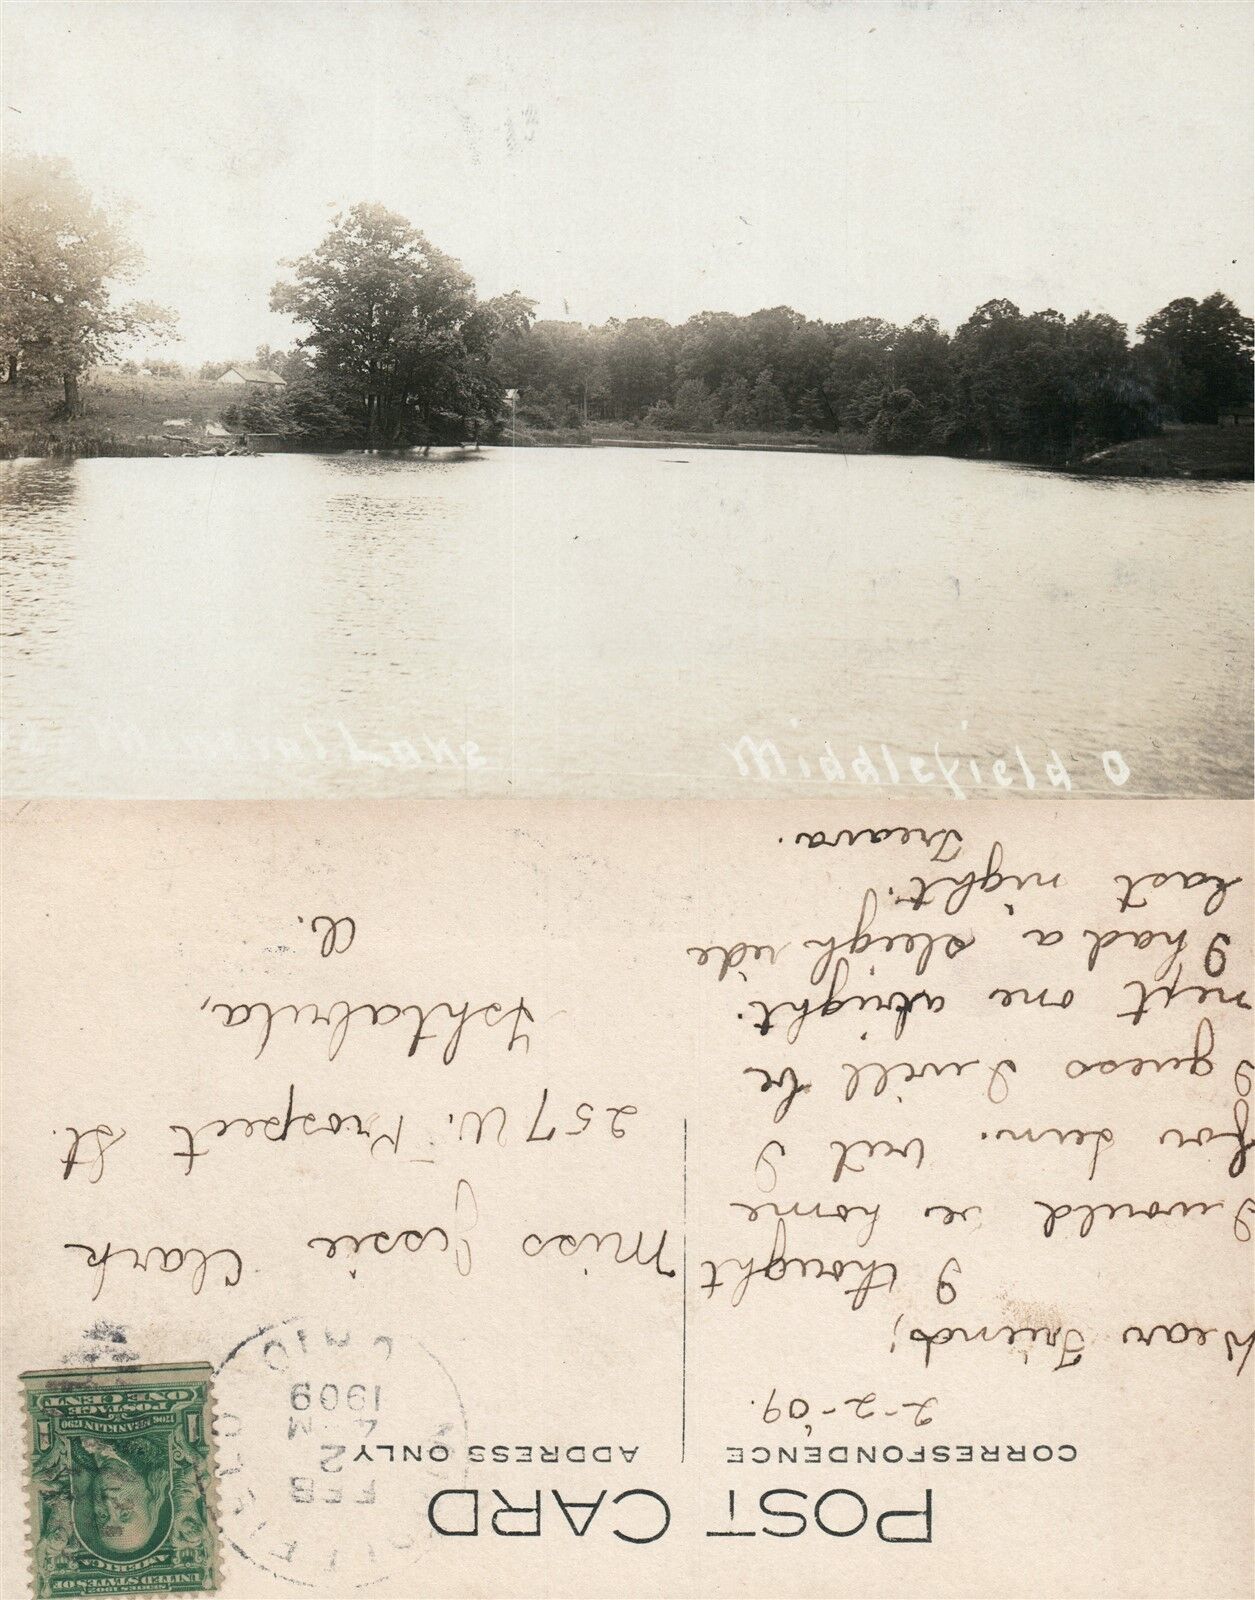 Mineral Lake
Middlefield O
POST CARD
CORRESPONDENCE
ADDRESS ONLY
2-2-'09.
Dear Friend;
I thought
I would be home
for Sun. but I
guess I will be
next one alright.
I had a sleigh ride
last night.
Treava.
Miss Jessie Clark
257 W. Prospect St.
Ashtabula,
O.
FEB
2
4 M
1909
OHIO
SERIES 1902
UNITED STATES OF
AMERICA
1706 FRANKLIN 1790
1 POSTAGE 1
ONE CENT